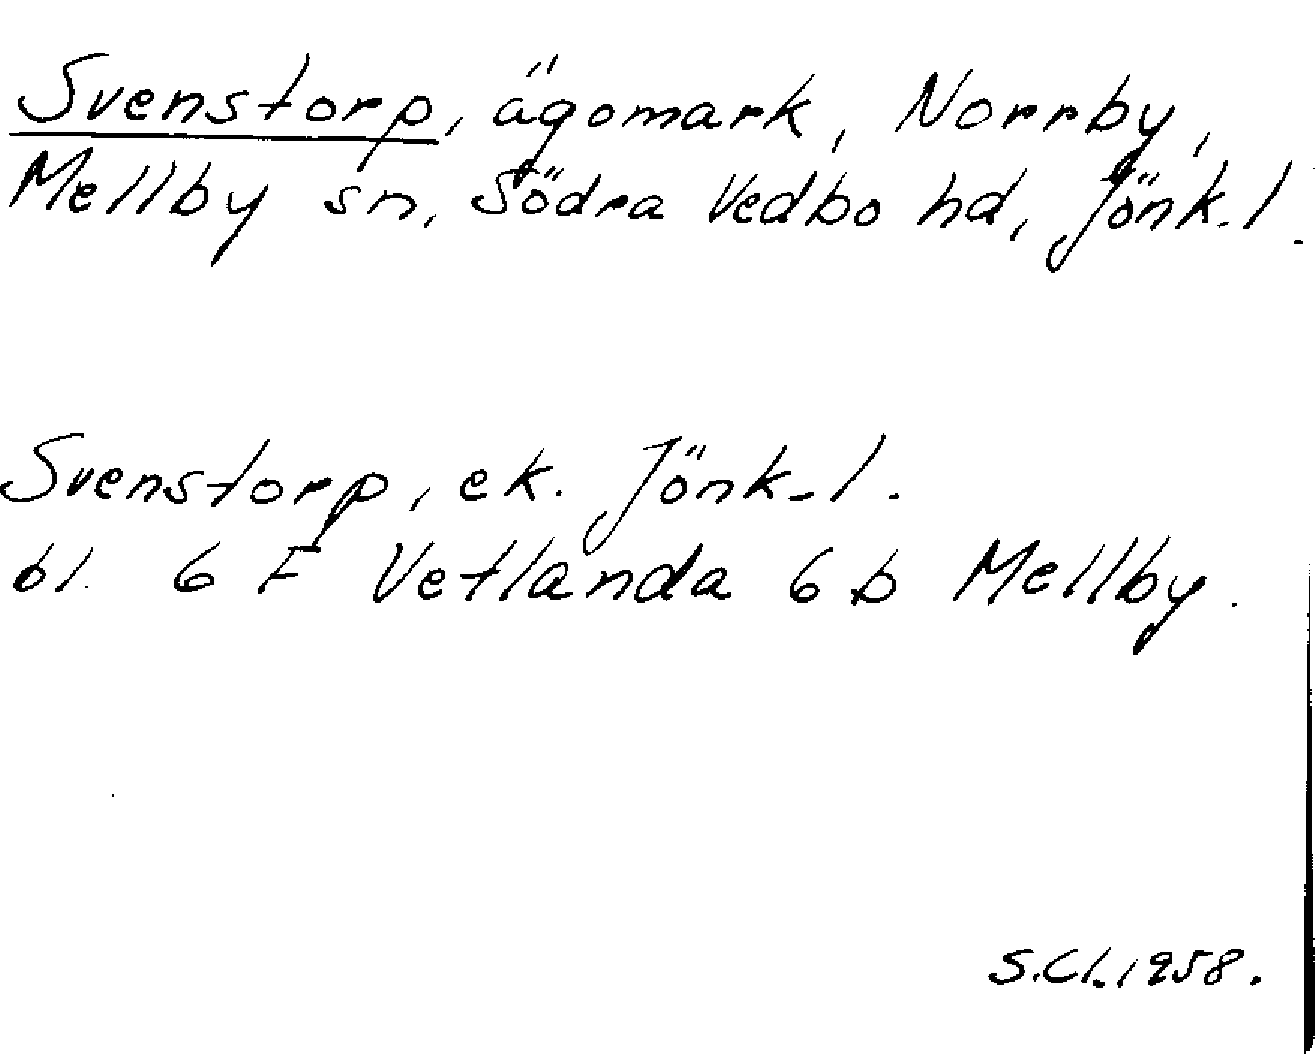 Svenstorp, ägomark, Norrby,
Mellby sn, Södra Vedbo hd, Jönk. l.
Svenstorp, ek. Jönk. l.
bl. 6 F Vetlanda 6 b Mellby.
S.Cl. 1958.